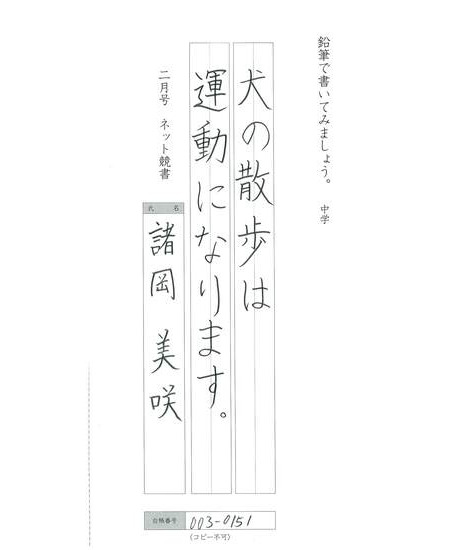 鉛筆で書いてみましょう。 中学
犬の散歩は
運動になります。
二月号 ネット競書
氏名
諸岡 美咲
合格番号 003-0151
(コピー不可)